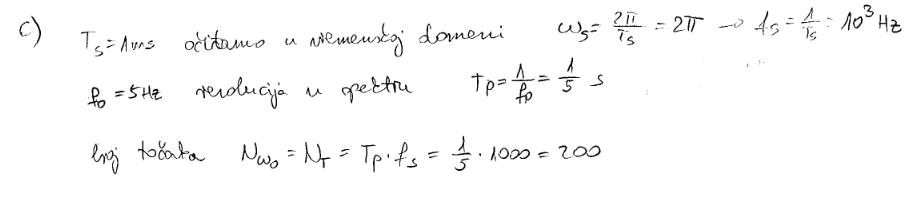 c) T_s = 1ms očitamo u vremenskoj domeni ω_s = 2π/T_s = 2π → f_s = 1/T_s = 10³ Hz
f_0 = 5Hz rezolucija u spektru T_p = 1/f_0 = 1/5 s
broj točaka N_ω0 = N_T = T_p · f_s = 1/5 · 1000 = 200